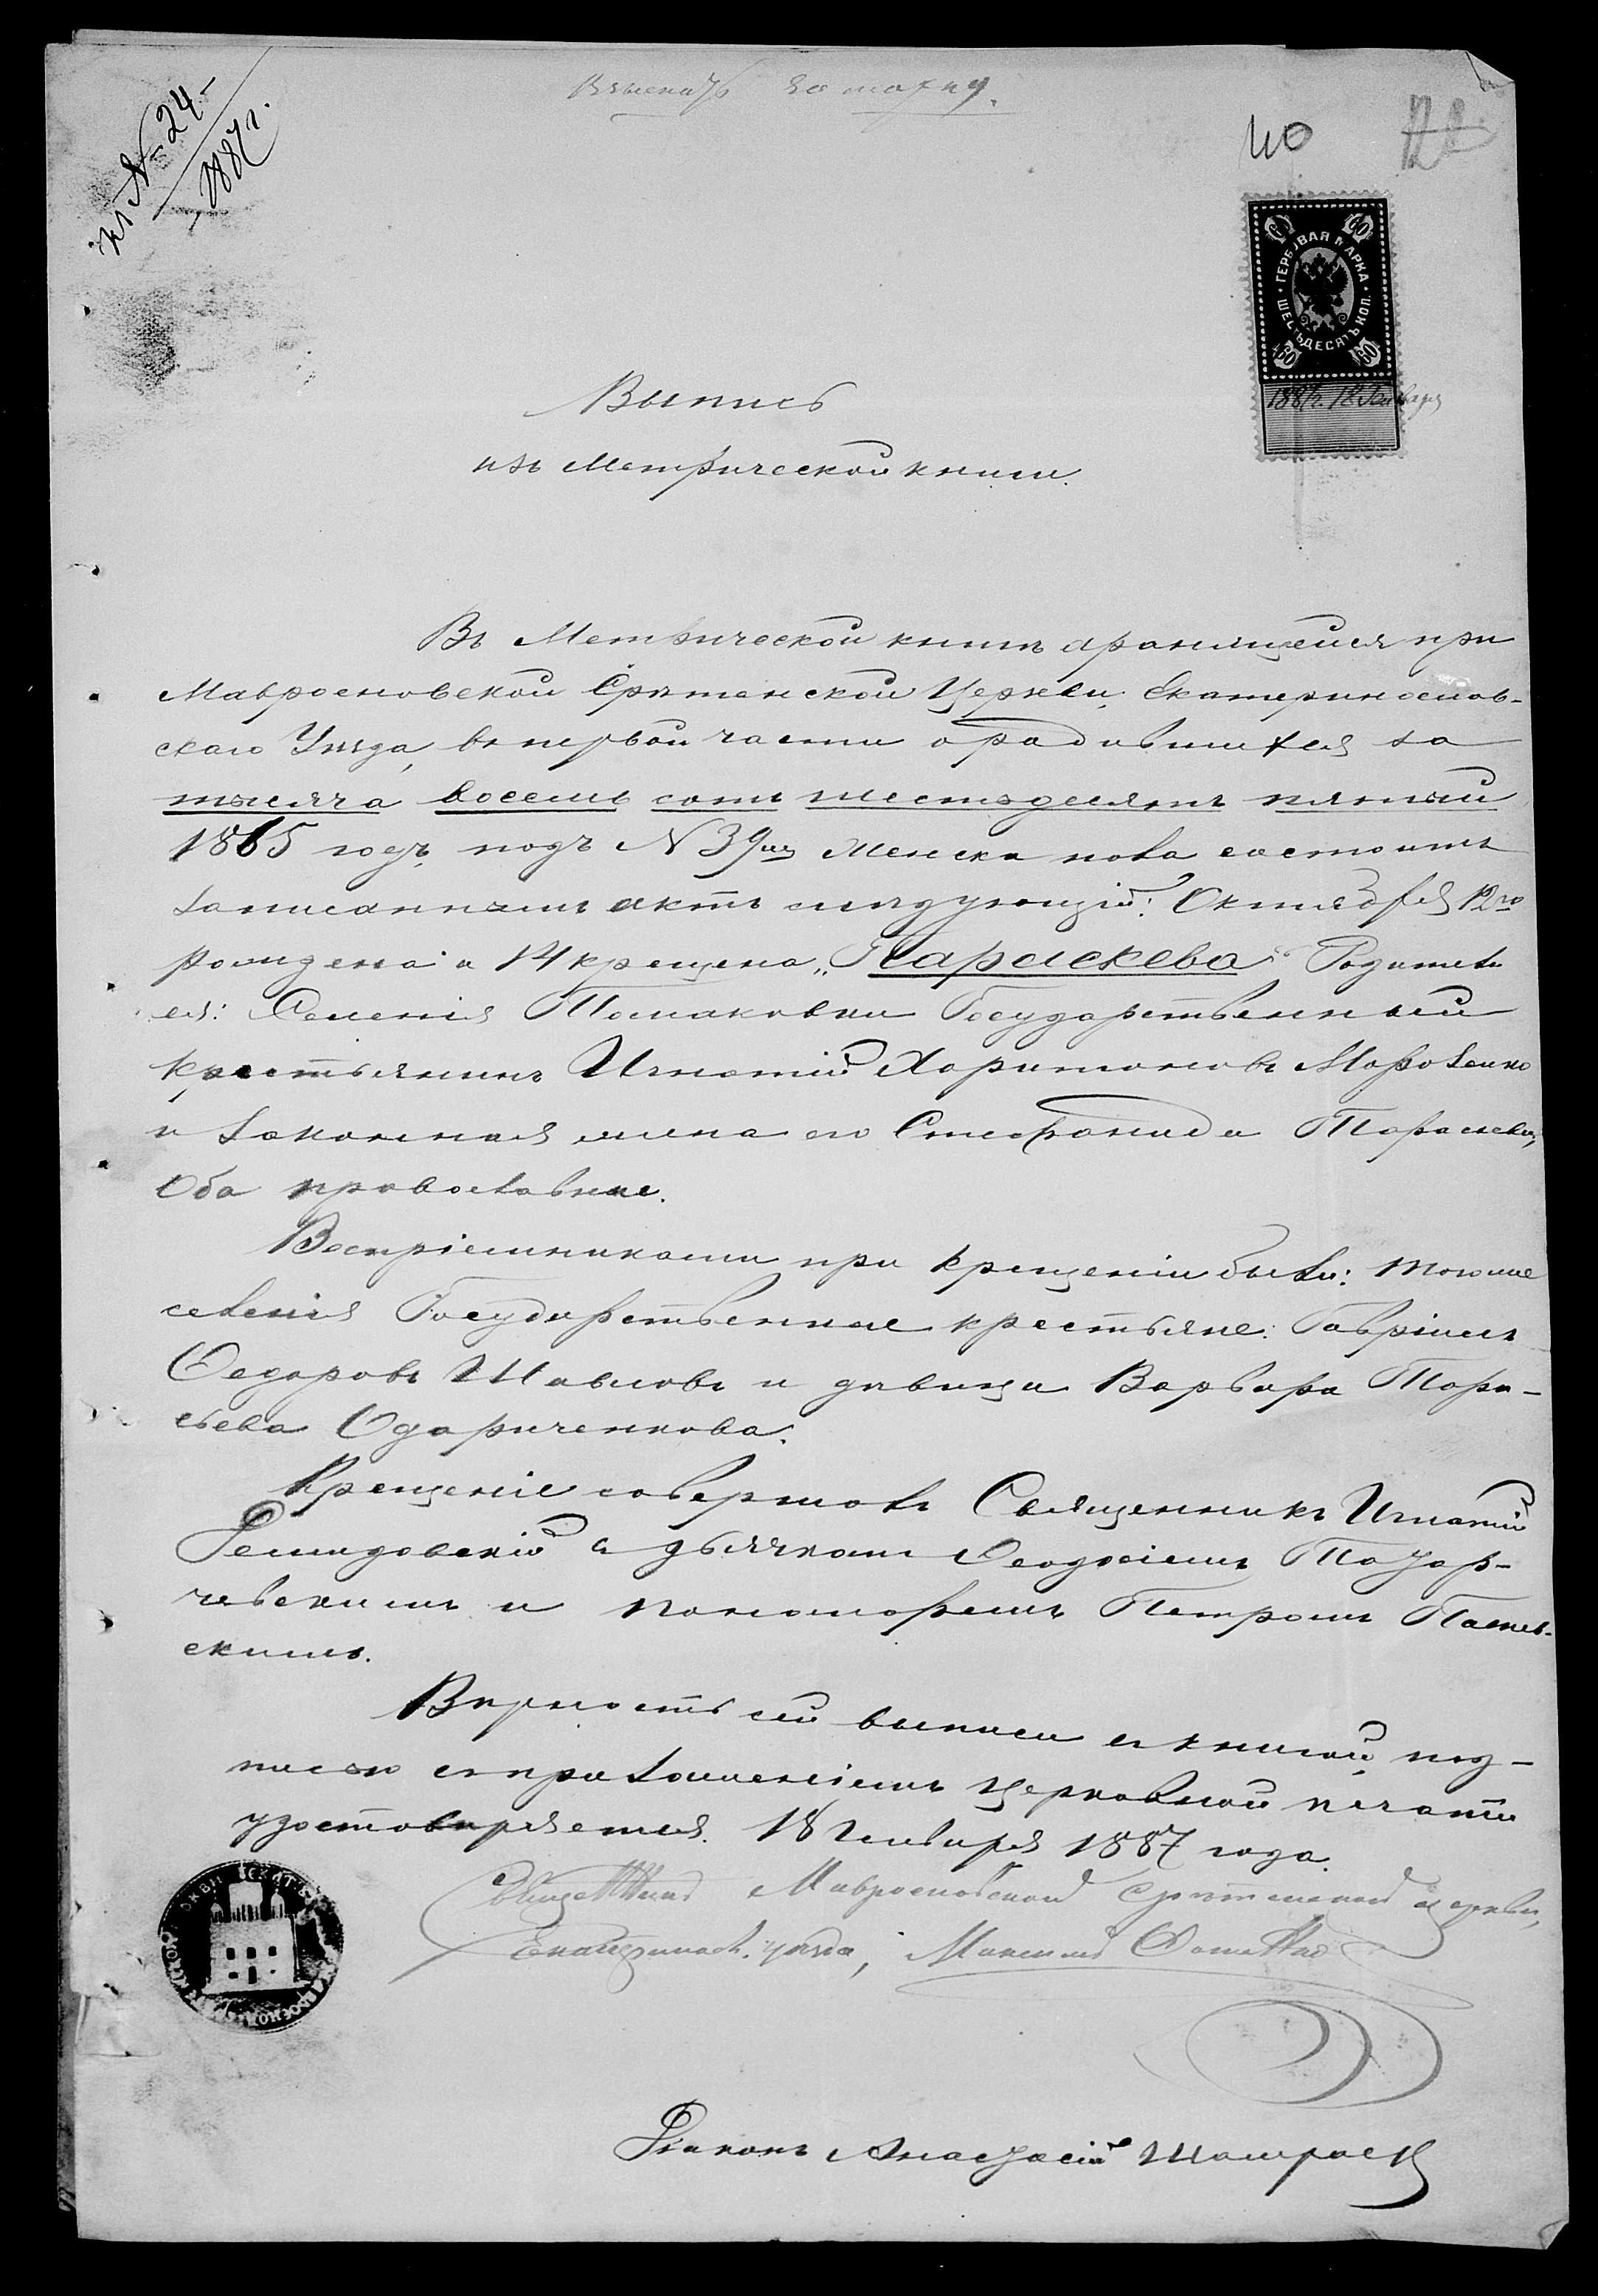 къ № 24 - 1887 г.
Взыскать за марку.
40
ГЕРБОВАЯ МАРКА
ШЕСТЬДЕСЯТЪ КОП.
60 60 60 60
1887 г. 18 Января
Выпись
изъ Метрической книги.
Въ Метрической книгѣ хранящейся при
Мавроеновской Срѣтенской Церкви, Екатеринослав-
скаго Уѣзда, въ первой части о родившихся за
тысяча восемь сотъ шестьдесятъ пятый
1865 годъ, подъ № 39мъ женска пола состоитъ
записаннымъ актъ слѣдующій: Октября 12го
рождена а 14 крещена „Параскева“ Родители
ея: Селенія Томаковки Государственный
крестьянинъ Игнатій Харитоновъ Морозенко
и законная жена его Стефанида Тарасьева,
Оба православные.
Воспріемниками при крещеніи были: того же
селенія Государственные крестьяне: Гавріилъ
Федоровъ Шавловъ и дѣвица Варвара Тара-
сьева Одариченкова.
Крещеніе совершалъ Священникъ Игнатій
Демидовскій съ дьячкомъ Феодосіемъ
и пономоремъ Петромъ
скимъ.
Вѣрность сей выписи съ книгой, под-
писью съ приложеніемъ церковной печати
удостовѣряется. 18 Января 1887 года.
Священникъ Мавроеновской Срѣтенской церкви,
Екатериносл. уѣзда,
Діаконъ Анастасій